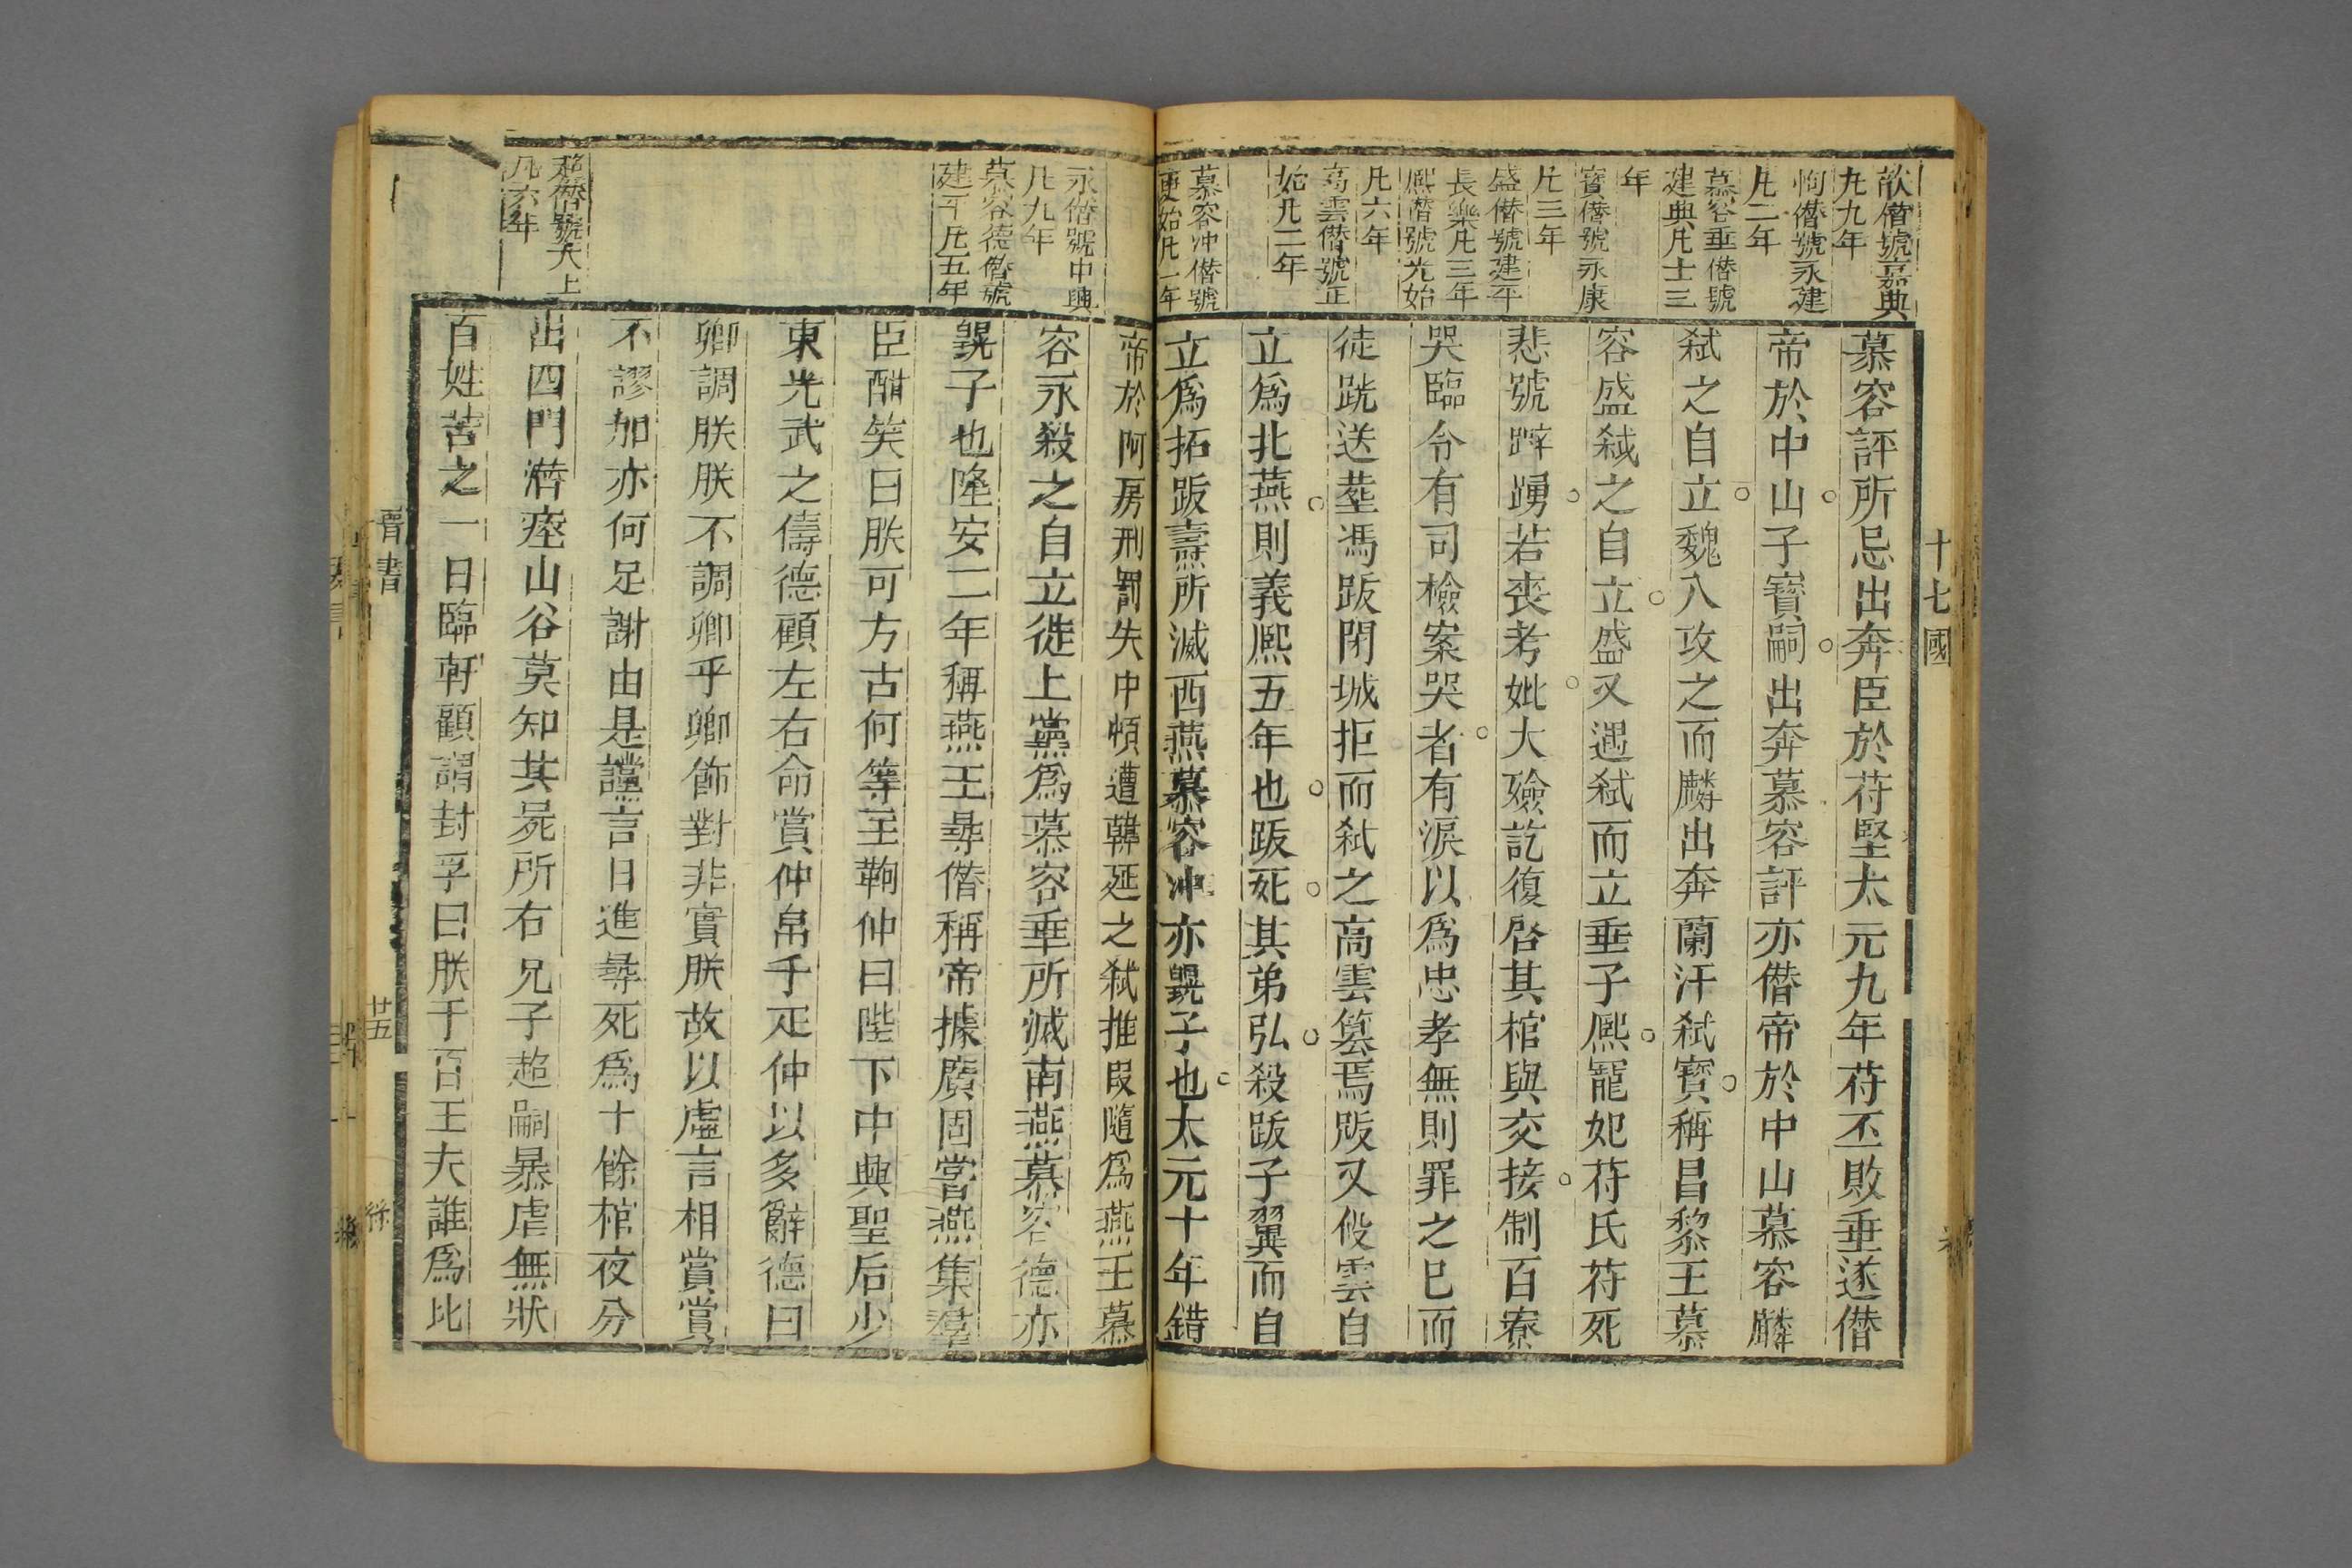 十七國
歆僭號嘉典
凡九年
恂僭號永建
凡二年
慕容垂僭號
建典凡十三
年
寳僭號永康
凡三年
盛僭號建平
長樂凡三年
熙僭號光始
凡六年
高雲僭號正
始凡二年
慕容冲僭號
更始凡一年
慕容評所忌出奔臣於苻堅太元九年苻丕敗垂遂僭
帝於中山子寳嗣出奔慕容評亦僭帝於中山慕容麟
弑之自立魏入攻之而麟出奔蘭汗弑寳稱昌黎王慕
容盛弑之自立盛又遇弑而立垂子熙寵妃苻氏苻死
悲號躃踴若喪考妣大殮訖復啓其棺與交接制百寮
哭臨令有司檢案哭者有淚以為忠孝無則罪之已而
徒跣送塟馮跋閉城拒而弑之高雲篡焉跋又殺雲自
立為北燕則義熙五年也跋死其弟弘殺跋子翼而自
立爲拓跋燾所滅西燕慕容冲亦皝子也太元十年錯
永僭號中興
凡九年
慕容德僭號
建平凡五年
超僭號太上
凡六年
帝於阿房刑罰失中頃遭韓延之弑推段隨爲燕王慕
容永殺之自立徙上黨爲慕容垂所滅南燕慕容德亦
皝子也隆安二年稱燕王尋僭稱帝據廣固嘗燕集羣
臣酣笑曰朕可方古何等主鞠仲曰陛下中興聖后少
東光武之儔德顧左右命賞仲帛千疋仲以多辭德曰
卿調朕朕不調卿乎卿飾對非實朕故以虛言相賞賞
不謬加亦何足謝由是讜言日進尋死爲十餘棺夜分
出四門濳瘞山谷莫知其屍所右兄子超嗣暴虐無狀
百姓苦之一日臨軒顧謂封孚曰朕于百王夫誰爲比
晉書
廿五
徐